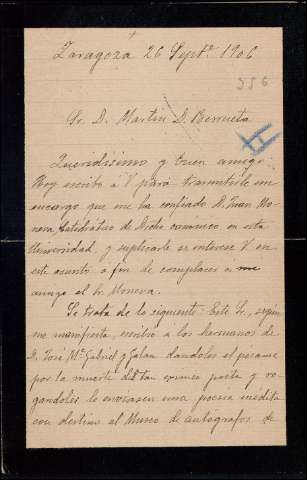 Zaragoza 26 Septe. 1906
386
Sr. D. Martin D. Berrueta
Queridisimo y buen amigo:
Hoy escribo á V. para transmitirle un
encargo que me ha confiado D. Juan Mo-
neva, Catedrático de Dicho canonico en esta
Universidad, y suplicarle se interese V. en
este asunto a fin de complacer a
amigo el Sr. Moneva.
Se trata de lo siguiente: Este Sr., segun
me manifiesta, escribio a los hermanos de
D. Jose Mª Gabriel y Galan dandoles el pesame
por la muerte del tan eximio poeta y ro-
gandoles le enviasen una poesia inédita
con destino al Museo de autógrafos de